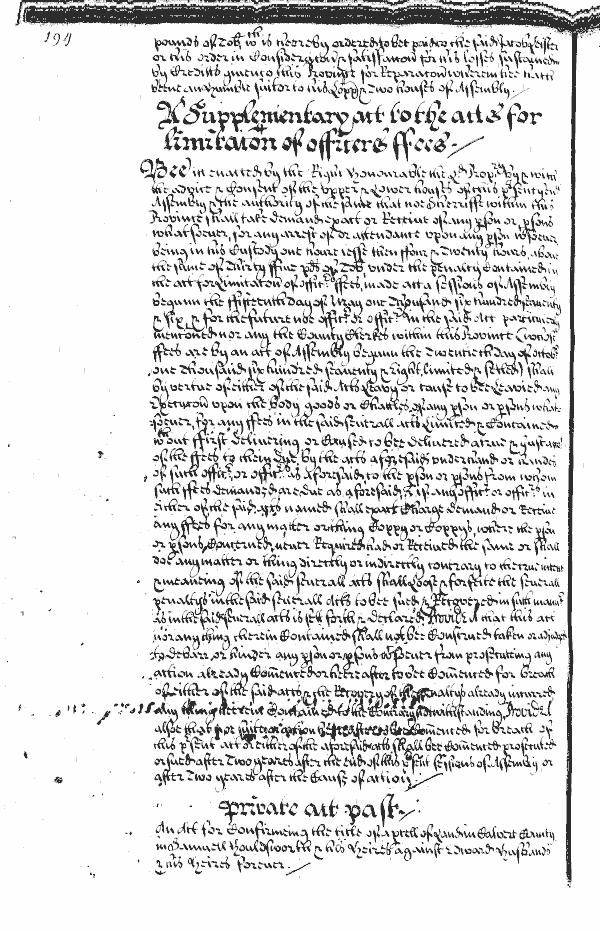 194
pounds of Tob. wch is hereby ordered to bee paid to the said Jacob
or his order in Consideracon & satisfaccon for his losses sustayned
by Credits given to this Province for Reparacon wherein hee hath
beene an humble suitor to his Lopp & Two houses of Assembly.
A Supplementary act to the acts for
limitacon of officers ffees.
Bee it enacted by the Right Honourable the Ld Propry by & with
the advice & Consent of the upper & Lower houses of this psent Genll
Assembly & the authority of the same that noe Sherriffe within this
Province shall take demand exact or Receive of any pson or psons
whatsoever, for any arrest of or attendance upon any pson whatsoever
being in his Custody one houre lesse then ffour & Twenty hours, above
the same of Thirty ffive pds of Tob. under the penalty Contained in
the act for Limitacon of officrs ffees, made att a sessions of Assembly
begunn the ffifteenth day of May one Thousand six hundred seventy
& six, & for the future noe officr or officrs in the said Act particulerly
mentioned nor any the County Clerkes within this Province (whose
ffees are by an act of Assembly begunn the Twentieth day of octobr
one Thousand six hundred seaventy & Eight, limited & settled) shall
by vertue of either of the said Acts Leavy or cause to bee Leavied any
Execucon upon the body goods or Chattles of any pson or psons whatsoever
for any ffees in the said severall acts Limited & Contained
without ffirst delivering or Caused to bee delivered a true & just acct
of the ffees to them Due by the acts aforesaid under hand
of such officr or officrs as aforesaid to the pson or psons from whom
such ffees demanded are due as aforesaid; & if any officr or officrs in
either of the said Acts named shall exact Charge demand or Receive
any ffees for any matter or thing Coppy or Coppys, where the pson
or psons Concerned never Required had or Received the same or shall
doe any matter or thing directly or indirectly contrary to the true intent
& meaning of the said severall acts shall Loose & forfeite the severall
penaltys in the said severall Acts to bee sued & Recovered in such manner
as in the said severall acts is sett forth & declared Provided that this act
nor any thing therein Contained shall not bee Construed taken or adjudged
to debarr or hinder any pson or psons whatsoever from prosecuting any
action already Comenced or hereafter to bee Comenced for breach
of either of the said acts & the Recovery of the penaltys already incurred
any thing herein Contained to the Contrary notwithstanding Provided
alsoe that for action hereafter to bee Comenced for breach of
this psent act or either of the aforesaid acts shall bee Comenced prosecuted
or sued after Two yeares after the end of this psent sessions of Assembly or
after Two yeares after the Cause of action.
Private act past.
An Act for Confirmeing the title of a pcell of Land in Calvert County
in Samuell Houldsworth & his Heires against Edward Husbands
& his Heires forever.